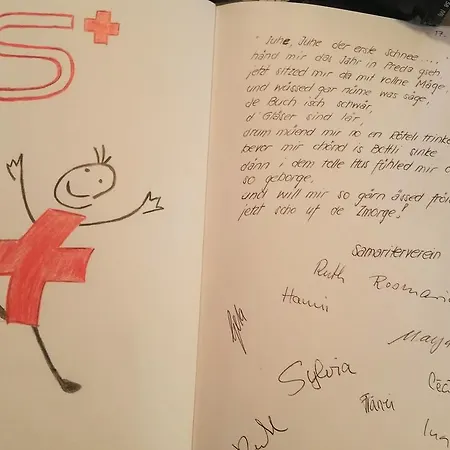 S+
17.
"Juhe, Juhe der erste Schnee....,"
händ mir das Jahr in Preda gseh
jetzt sitzed mir da mit vollne Mäge,
und wüssed gar nüme was säge,
de Buch isch schwär,
d'Gläser sind lär,
drum müend mir no en Röteli trinke
bevor mir chönd is Bettli sinke
dänn i dem tolle Hus fühled mir
so geborge,
und will mir so gärn ässed
jetzt scho uf de Zmorge!
Samariterverein
Ruth Rosmarie
Hanni
Sylvia
Ruth